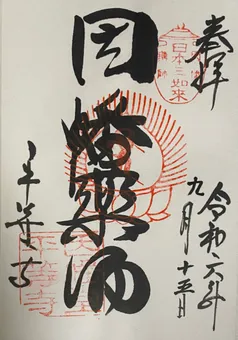 奉拝
令和六年
九月十五日
日本三如来
因幡薬師
平等寺